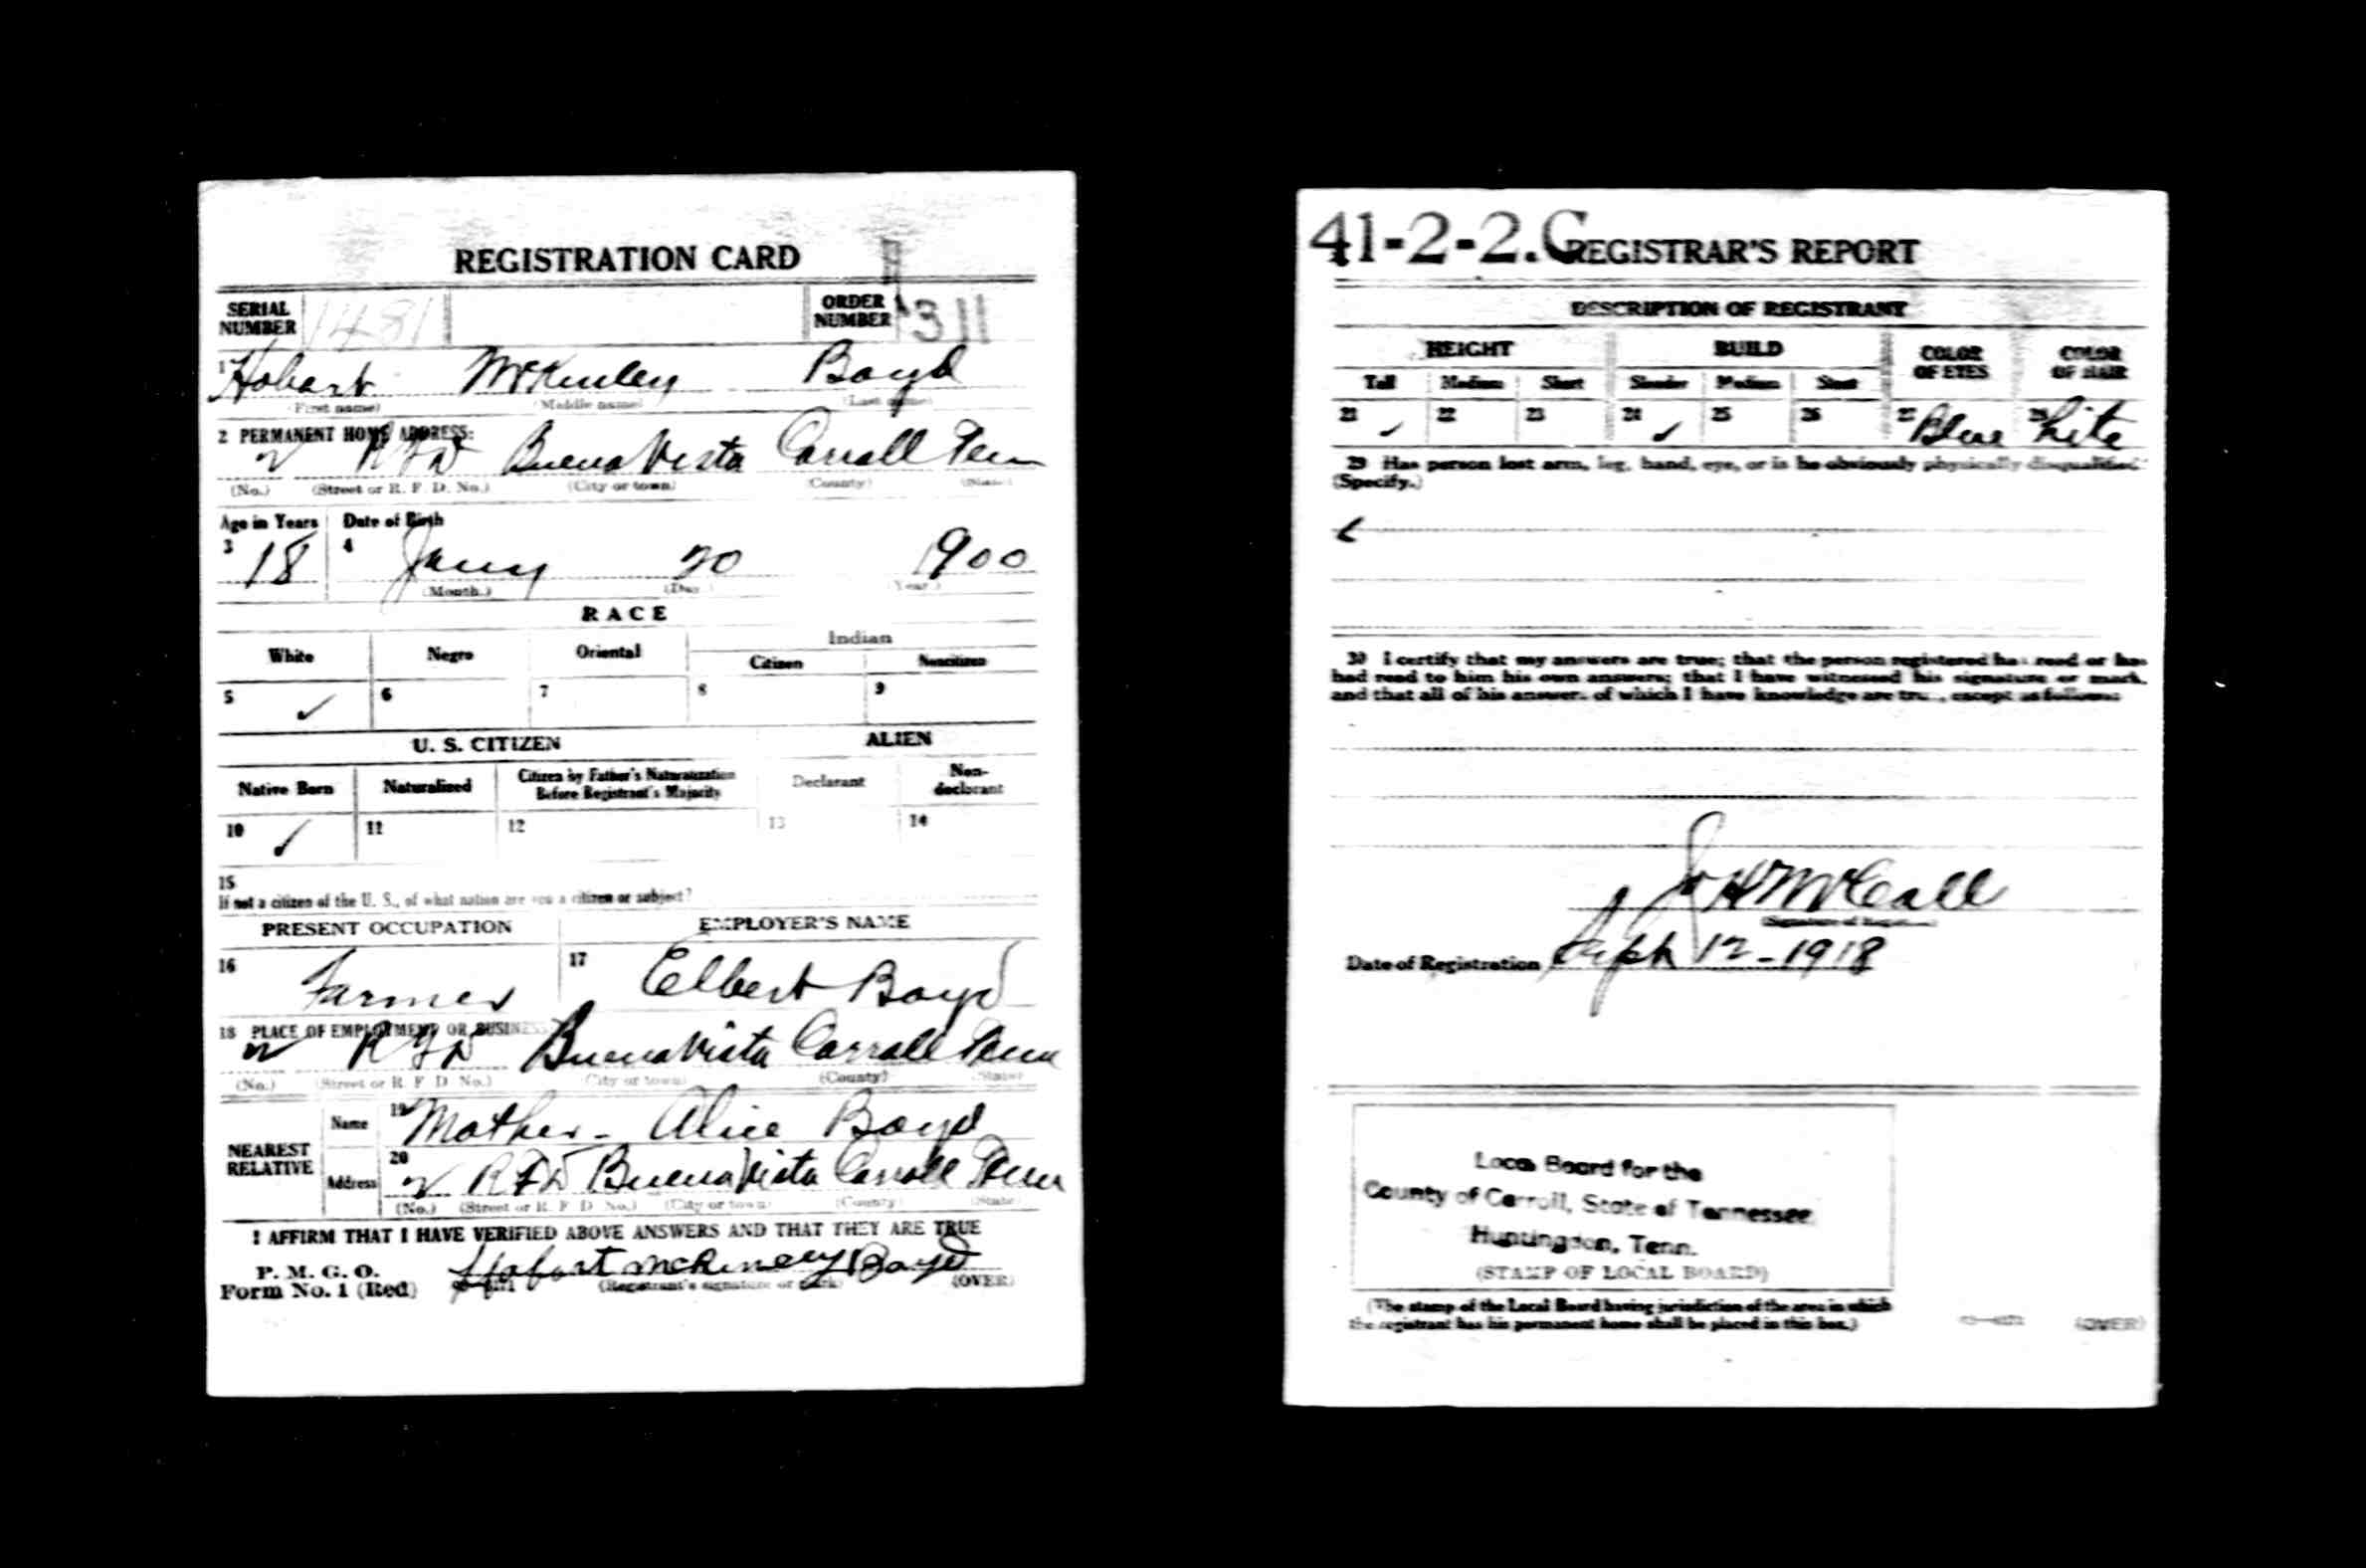 REGISTRATION CARD
SERIAL NUMBER 1481 ORDER NUMBER A311
1 Hobart McKinley Boyd
(First name) (Middle name) (Last name)
2 PERMANENT HOME ADDRESS:
2 RFD Buena Vista Carroll Tenn
(No.) (Street or R. F. D. No.) (City or town) (County) (State)
Age in Years Date of Birth
3 18 4 Jany 20 1900
(Month.) (Day.) (Year.)
RACE
White Negro Oriental Indian
Citizen Noncitizen
5 ✓ 6 7 8 9
U. S. CITIZEN ALIEN
Native Born Naturalized Citizen by Father's Naturalization Before Registrant's Majority Declarant Non-declarant
10 ✓ 11 12 13 14
15
If not a citizen of the U. S., of what nation are you a citizen or subject?
PRESENT OCCUPATION EMPLOYER'S NAME
16 Farmer 17 Elbert Boyd
18 PLACE OF EMPLOYMENT OR BUSINESS
2 RFD Buena Vista Carroll Tenn
(No.) (Street or R. F. D. No.) (City or town) (County) (State)
NEAREST RELATIVE
Name 19 Mother - Alice Boyd
Address 20 2 RFD Buena Vista Carroll Tenn
(No.) (Street or R. F. D. No.) (City or town) (County) (State)
I AFFIRM THAT I HAVE VERIFIED ABOVE ANSWERS AND THAT THEY ARE TRUE
P. M. G. O.
Form No. 1 (Red) Hobart McKinley Boyd
(Registrant's signature or mark) (OVER)
41-2-2.C REGISTRAR'S REPORT
DESCRIPTION OF REGISTRANT
HEIGHT BUILD COLOR OF EYES COLOR OF HAIR
Tall Medium Short Slender Medium Stout
21 ✓ 22 23 24 ✓ 25 26 27 Blue 28 Lite
29 Has person lost arm, leg, hand, eye, or is he obviously physically disqualified?
(Specify.)
30 I certify that my answers are true; that the person registered has read or has
had read to him his own answers; that I have witnessed his signature or mark,
and that all of his answers of which I have knowledge are true, except as follows:
McCall
(Signature of Registrar)
Date of Registration Sept 12-1918
Local Board for the
County of Carroll, State of Tennessee
Huntingdon, Tenn.
(STAMP OF LOCAL BOARD)
(The stamp of the Local Board having jurisdiction of the area in which
the registrant has his permanent home shall be placed in this box.)
(OVER)